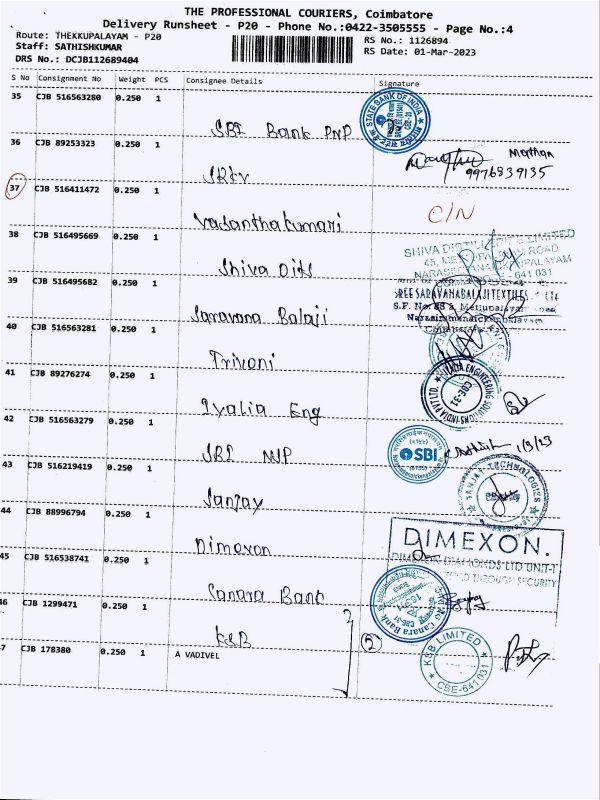 THE PROFESSIONAL COURIERS, Coimbatore
Delivery Runsheet - P20 - Phone No.:0422-3505555 - Page No.:4
Route: THEKKUPALAYAM - P20
RS No.: 1126894
Staff: SATHISHKUMAR
RS Date: 01-Mar-2023
DRS No.: DCJB112689404
S No Consignment No Weight PCS Consignee Details Signature
35 CJB 516563280 0.250 1
SBI Bank PNP
STATE BANK OF INDIA
36 CJB 89253323 0.250 1
9976839135
37 CJB 516411472 0.250 1
Vasanthakumari
C/N
38 CJB 516495669 0.250 1
Shiva Oils
SHIVA DISTILLERIES LIMITED
ROAD
641 031
39 CJB 516495682 0.250 1
Saravana Balaji
SREE SARAVANABALAJI TEXTILES
40 CJB 516563281 0.250 1
Triveni
41 CJB 89276274 0.250 1
Ivalia Eng
ENGINEERING SOLUTIONS INDIA PVT LTD.
CBE-31
42 CJB 516563279 0.250 1
SBI NJP
SBI
1/3/23
43 CJB 516219419 0.250 1
Sanjay
SANJAY TECHNOLOGIES
44 CJB 88996794 0.250 1
Dimexon
DIMEXON.
DIMEXON DIAMONDS LTD UNIT-I
THROUGH SECURITY
45 CJB 516538741 0.250 1
Canara Bank
Canara Bank
46 CJB 1299471 0.250 1
KSB
47 CJB 178380 0.250 1 A VADIVEL
2
KSB LIMITED
CBE-641 031